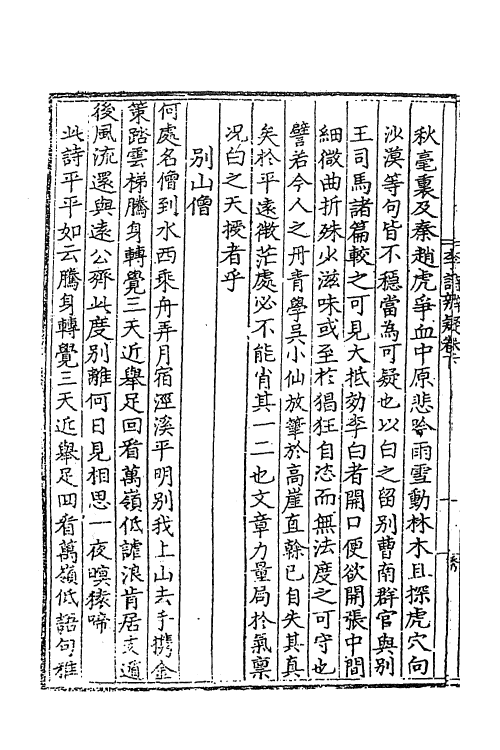 秋毫裏及秦趙虎爭血中原悲吟雨雪動林木且探虎穴向
沙漠等句皆不穩當為可疑也以白之留別曹南群官與別
王司馬諸篇較之可見大抵効李白者開口便欲開張中間
細微曲折殊少滋味或至於猖狂自恣而無法度之可守也
譬若今人之丹青學吳小仙放筆於高崖直榦已自失其真
矣於平遠微茫處必不能肖其一二也文章力量局於氣稟
况白之天授者乎
別山僧
何處名僧到水西乘舟弄月宿涇溪平明別我上山去手攜金
策踏雲梯騰身轉覺三天近舉足回看萬嶺低謔浪肯居支遁
後風流還與遠公齊此度別離何日見相思一夜暝猿啼
此詩平平如云騰身轉覺三天近舉足回看萬嶺低語句雅
李詩辨疑卷下